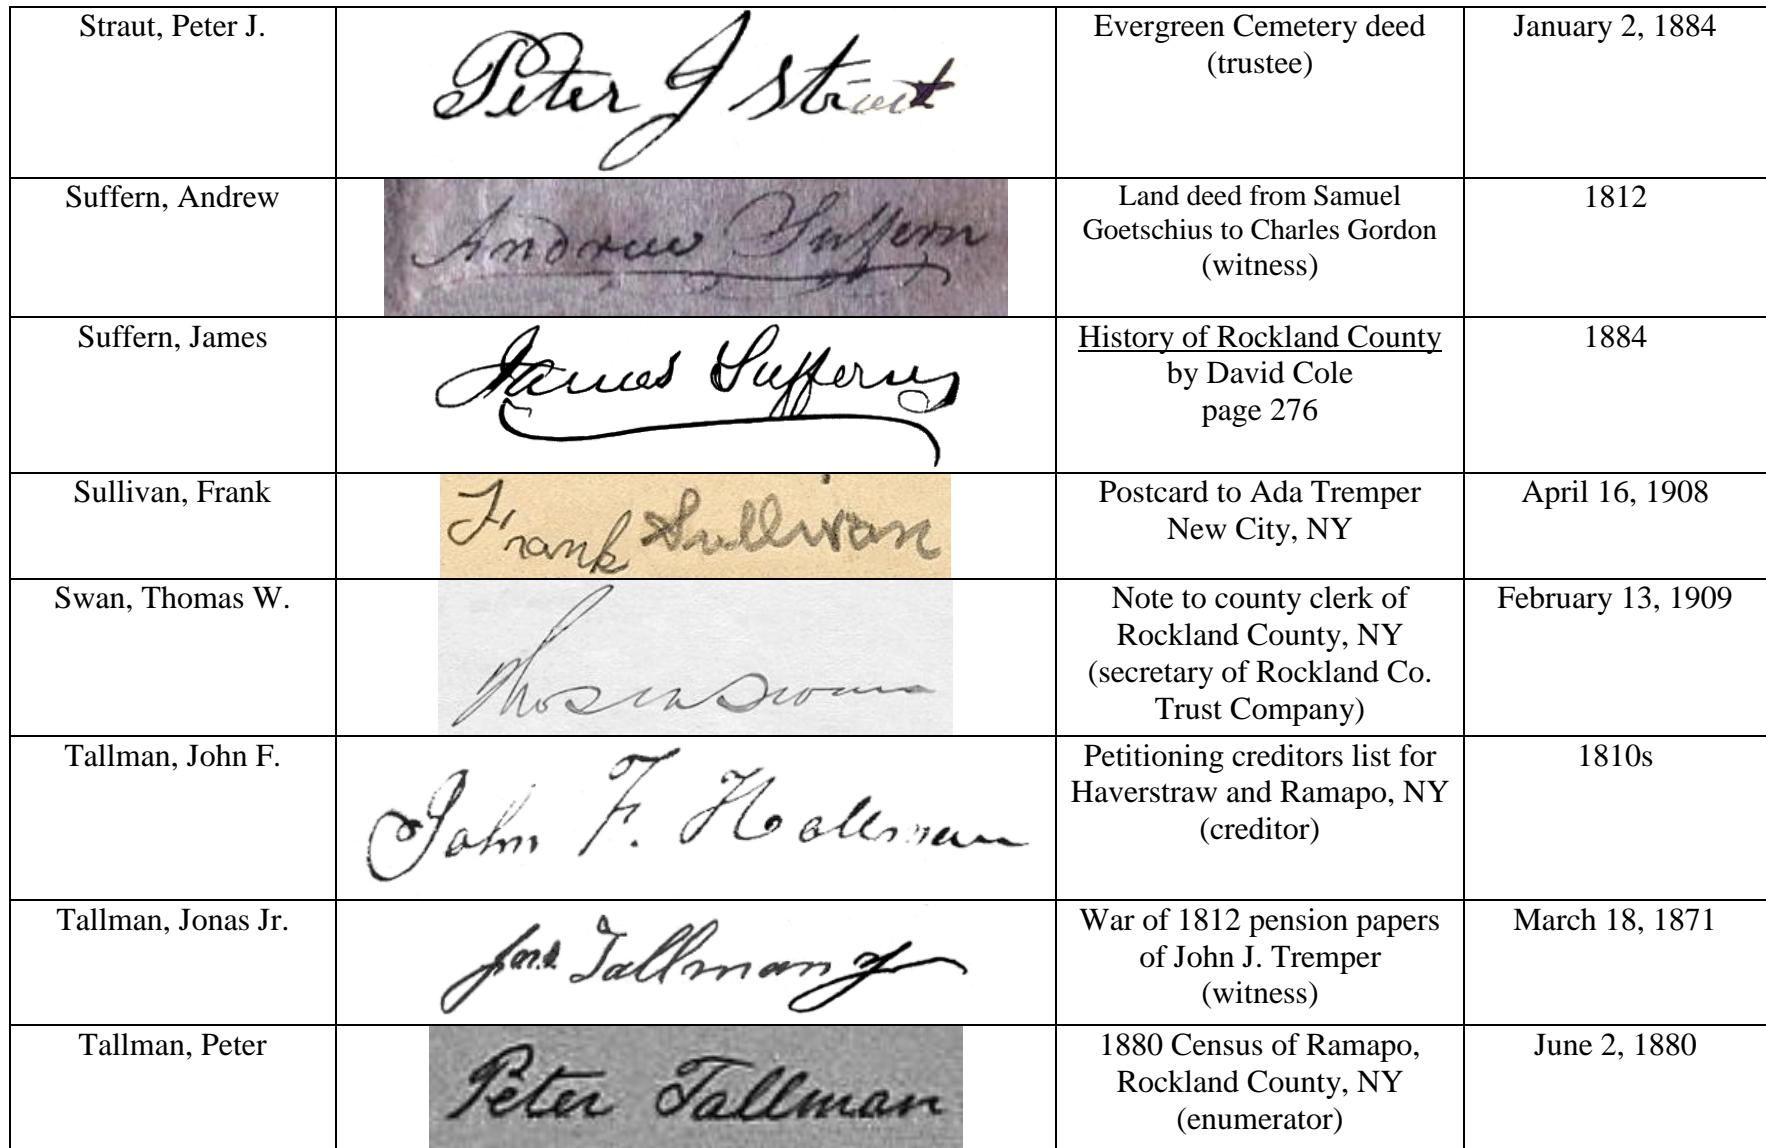 Straut, Peter J.
Peter J Straut
Evergreen Cemetery deed
(trustee)
January 2, 1884
Suffern, Andrew
Andrew Suffern
Land deed from Samuel
Goetschius to Charles Gordon
(witness)
1812
Suffern, James
James Suffern
History of Rockland County
by David Cole
page 276
1884
Sullivan, Frank
Frank Sullivan
Postcard to Ada Tremper
New City, NY
April 16, 1908
Swan, Thomas W.
Thos W Swan
Note to county clerk of
Rockland County, NY
(secretary of Rockland Co.
Trust Company)
February 13, 1909
Tallman, John F.
John F. Tallman
Petitioning creditors list for
Haverstraw and Ramapo, NY
(creditor)
1810s
Tallman, Jonas Jr.
Jons Tallman Jr
War of 1812 pension papers
of John J. Tremper
(witness)
March 18, 1871
Tallman, Peter
Peter Tallman
1880 Census of Ramapo,
Rockland County, NY
(enumerator)
June 2, 1880